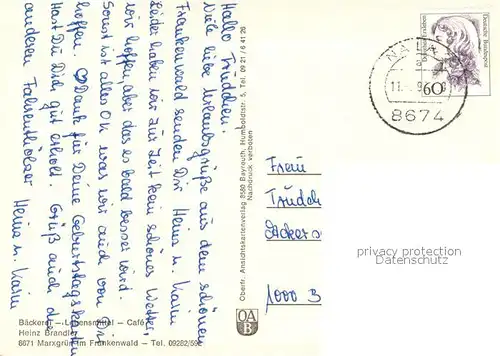 Hallo Trudchen,
Viele liebe Urlaubsgrüße aus dem schönen
Frankenwald senden Dir Heinz u. Karin
Leider haben wir zur Zeit kein schönes Wetter,
wir hoffen, aber das es bald besser wird.
Sonst ist alles OK was wir auch von Dir
hoffen. Dank für Deine Geburtstagskarte
Hast Du Dich gut erholt. Grüß auch die
anderen Heinz u. Karin
Bäckerei – Lebensmittel – Café
Heinz Brandler
8671 Marxgrün im Frankenwald – Tel. 09282/592
Oberfr. Ansichtskartenverlag 8580 Bayreuth, Humboldtstr. 5, Tel. 09 21 / 6 41 26
Nachdruck verboten
OAB
Deutsche Bundespost
60
NAILA
11.
8674
Frau
Trudch
1000 B
privacy protection
Datenschutz